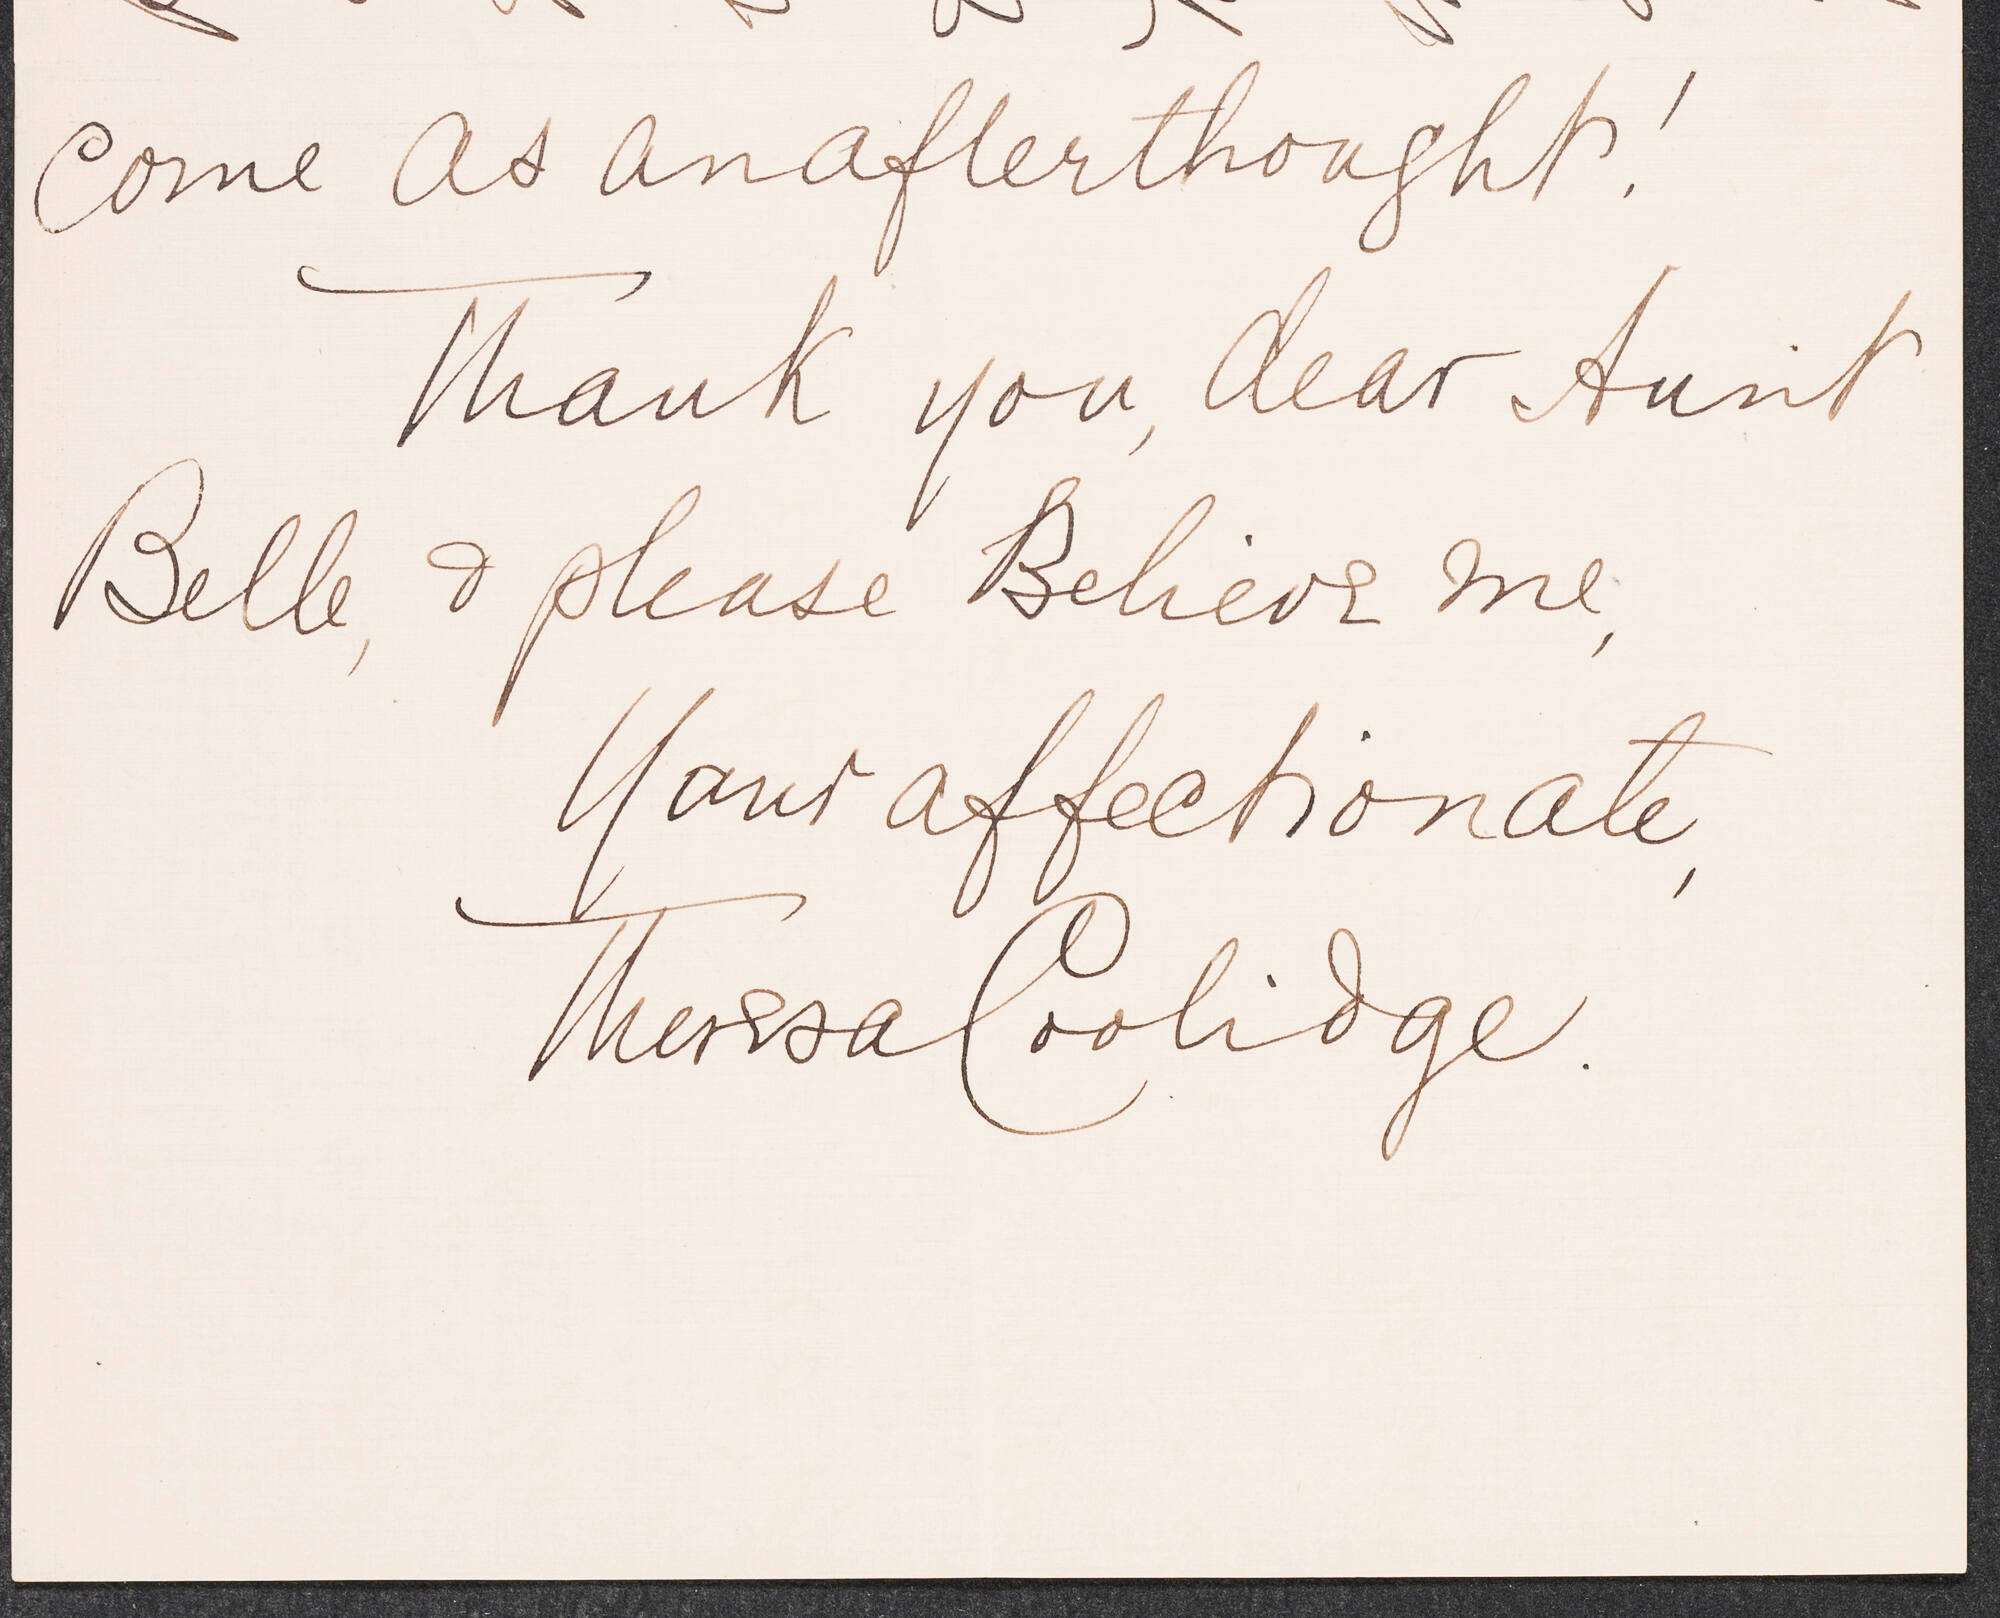 come as an afterthought!
Thank you, dear Aunt
Belle, & please Believe me,
Your affectionate,
Theresa Coolidge.